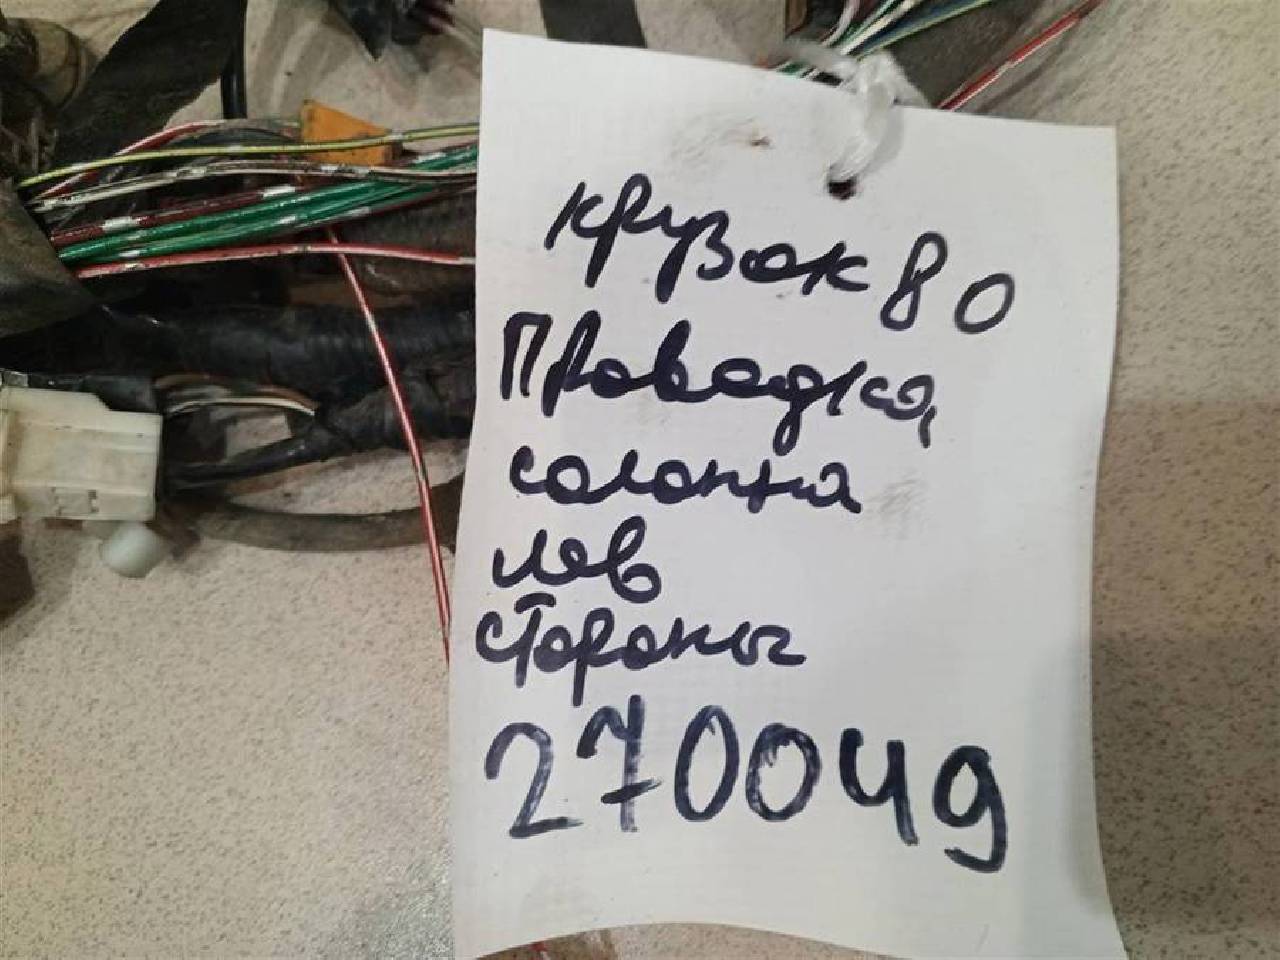 крузак 80
Проводка,
салонная
лев
стороны
270049